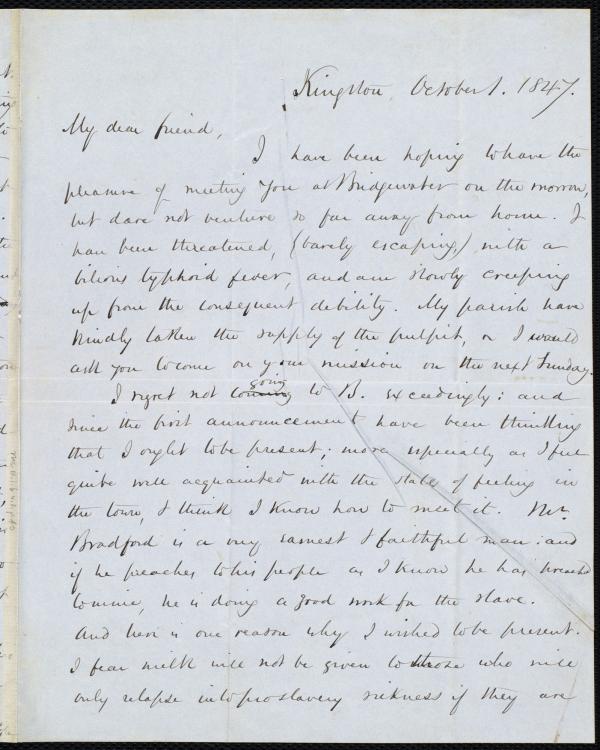 Kingston, October 1. 1847.
My dear friend,
I have been hoping to have the
pleasure of meeting you at Bridgewater on the morrow,
but dare not venture so far away from home. I
have been threatened, (barely escaping,) with a
bilious typhoid fever, and am slowly creeping
up from the consequent debility. My parish have
kindly taken the supply of the pulpit, or I would
ask you to come on your mission on the next Sunday.
I regret not coming going to B. exceedingly: and
since the first announcement have been thinking
that I ought to be present; more especially as I feel
quite well acquainted with the state of feeling in
the town, & think I know how to meet it. Mr.
Bradford is a very earnest & faithful man: and
if he preaches to his people as I know he has preached
to mine, he is doing a good work for the slave.
And here is one reason why I wished to be present.
I fear milk will not be given to those who will
only relapse into proslavery sickness if they are